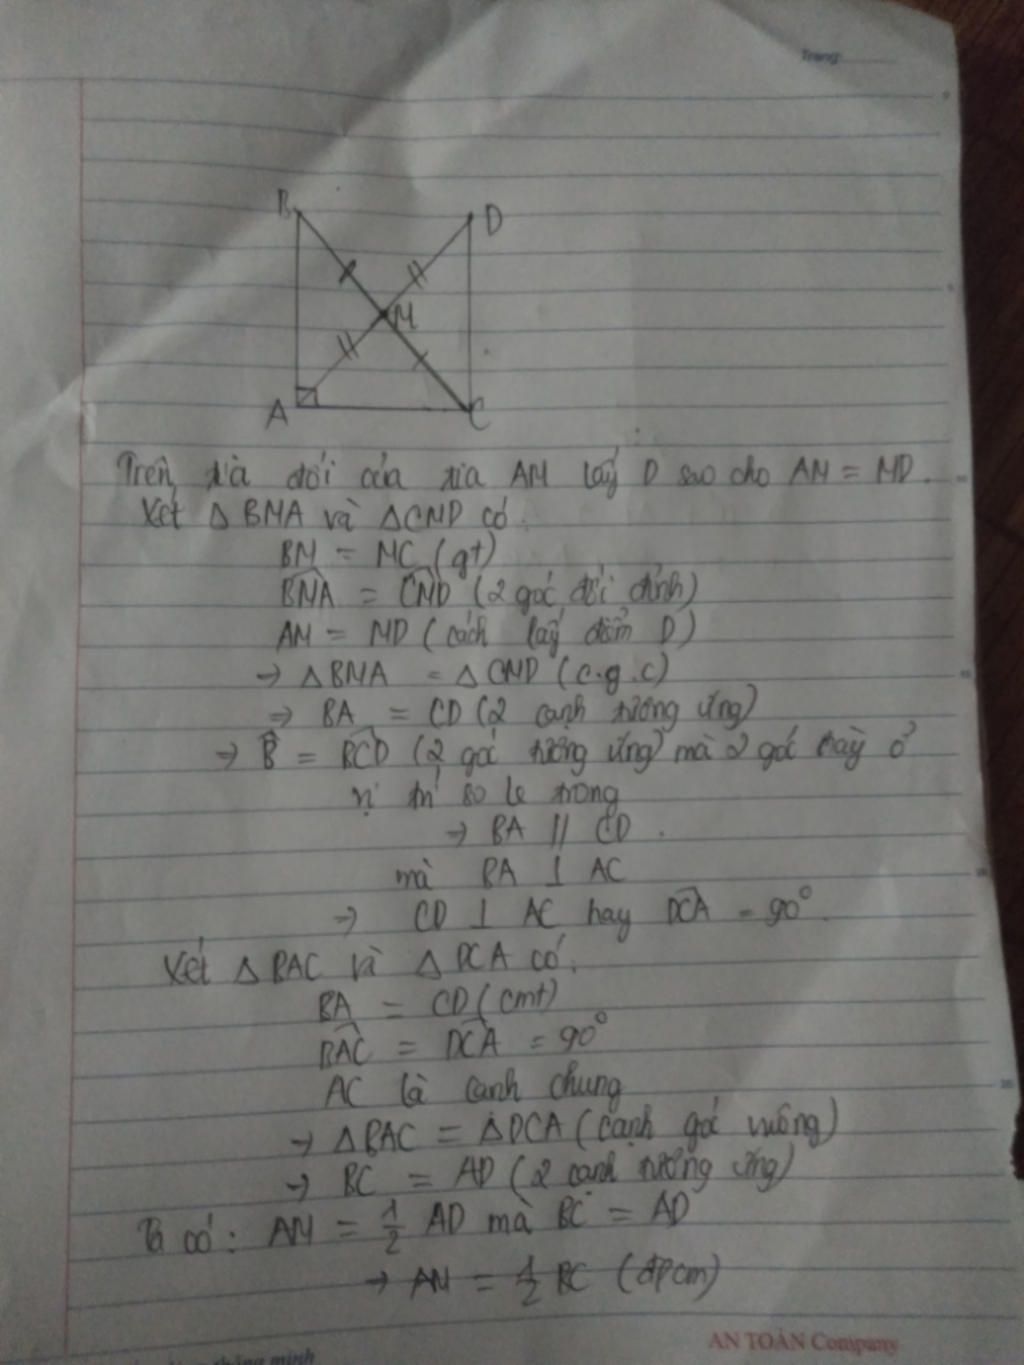 Trang
B
D
M
A
C
Trên tia đối của tia AM lấy D sao cho AM = MD.
Xét △BMA và △CMD có:
BM = MC (gt)
BMA = CMD (2 góc đối đỉnh)
AM = MD (cách lấy điểm D)
→ △BMA = △CMD (c.g.c)
⇒ BA = CD (2 cạnh tương ứng)
→ B̂ = BCD (2 góc tương ứng) mà 2 góc này ở
vị trí so le trong
→ BA // CD.
mà BA ⊥ AC
→ CD ⊥ AC hay DCA = 90°.
Xét △BAC và △DCA có:
BA = CD (cmt)
BAC = DCA = 90°
AC là cạnh chung
→ △BAC = △DCA (cạnh góc vuông)
→ BC = AD (2 cạnh tương ứng)
Ta có: AM = 1/2 AD mà BC = AD
→ AM = 1/2 BC (đpcm)
AN TOÀN Company